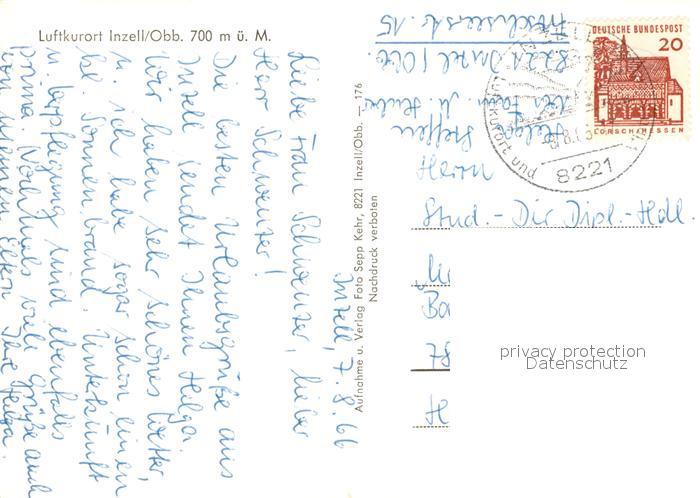 Luftkurort Inzell/Obb. 700 m ü. M.
Inzell, 7.8.66
Liebe Frau Schwenzer, lieber
Herr Schwenzer!
Die besten Urlaubsgrüße aus
Inzell sendet Ihnen Helga.
Wir haben sehr schönes Wetter,
u. ich habe sogar schon einen
Sonnenbrand. Unterkunft
u. Verpflegung sind ebenfalls
prima. Nochmals viele Grüße auch
von meinen Eltern Ihre Helga.
Aufnahme u. Verlag Foto Sepp Kehr, 8221 Inzell/Obb. — 176
Nachdruck verboten
Helga Steffen
bei Fam. M.
8221 Inzell/Obb.
15
DEUTSCHE BUNDESPOST
20
LORSCH/HESSEN
Luftkurort und
8221
Herrn
Stud.-Dir. Dipl.-Hdl.
Ba
78
H
privacy protection
Datenschutz